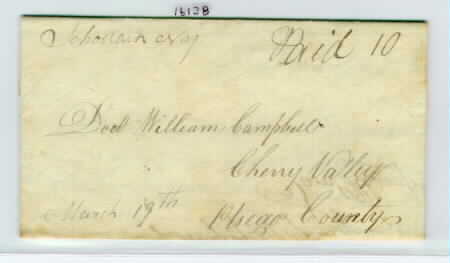 16128
Schodack N Y
Paid 10
Doct William Campbell
Cherry Valley
March 19th
Otsego County